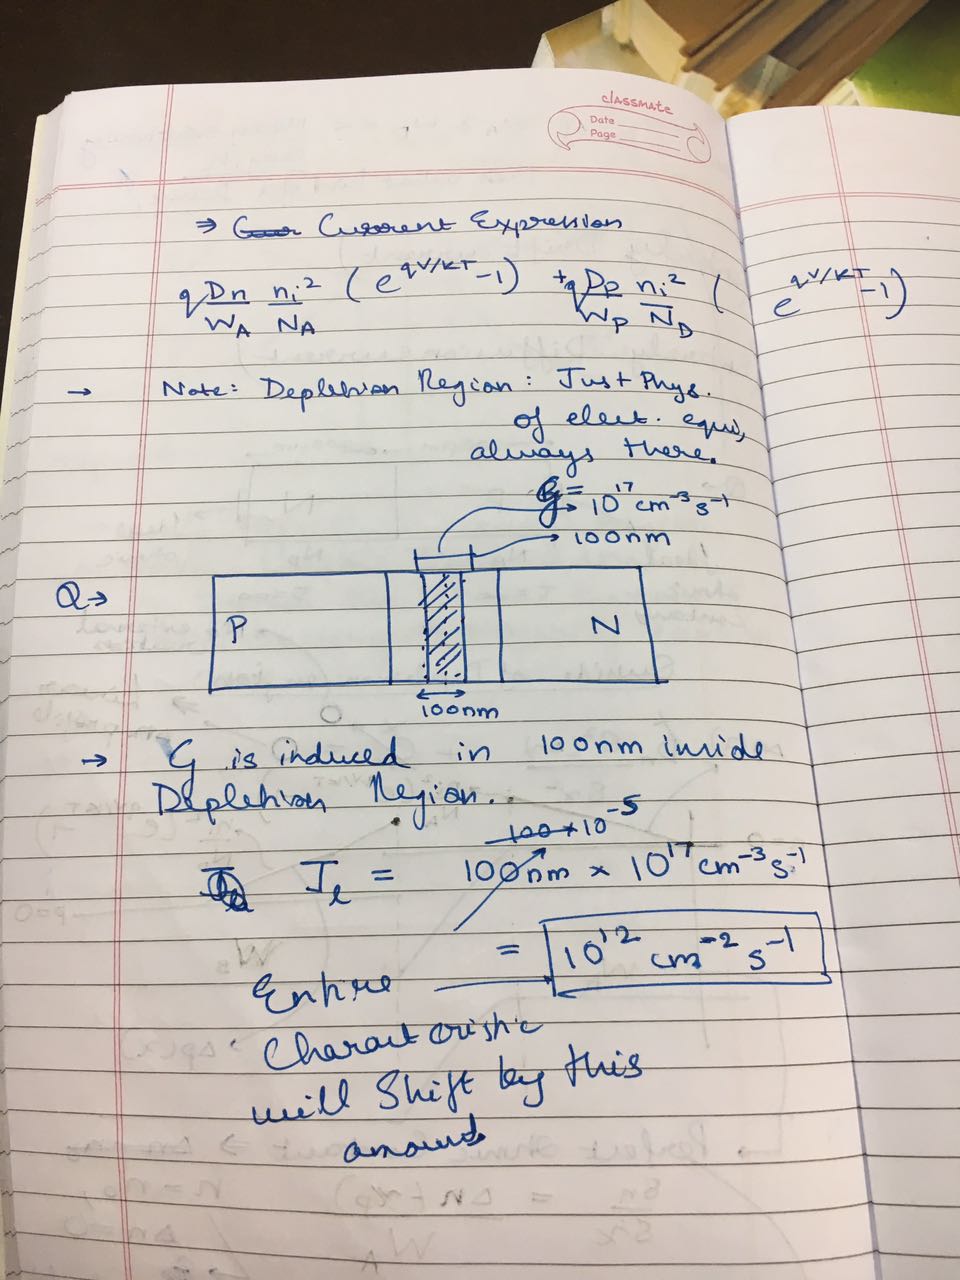 classmate
Date
Page
⇒ Current Expression
q Dn/W_A n_i²/N_A (e^(qV/KT) -1) + q Dp/W_P n_i²/N_D (e^(qV/KT) -1)
→ Note: Depletion Region: Just Phys.
of elect. equi,
always there.
G = 10^17 cm^-3 s^-1
100nm
Q→
P N
100nm
→ G is induced in 100nm inside
Depletion Region.
100×10^-5
J_l = 100nm × 10^17 cm^-3 s^-1
= 10^12 cm^-2 s^-1
Entire
Characteristic
will Shift by this
amount